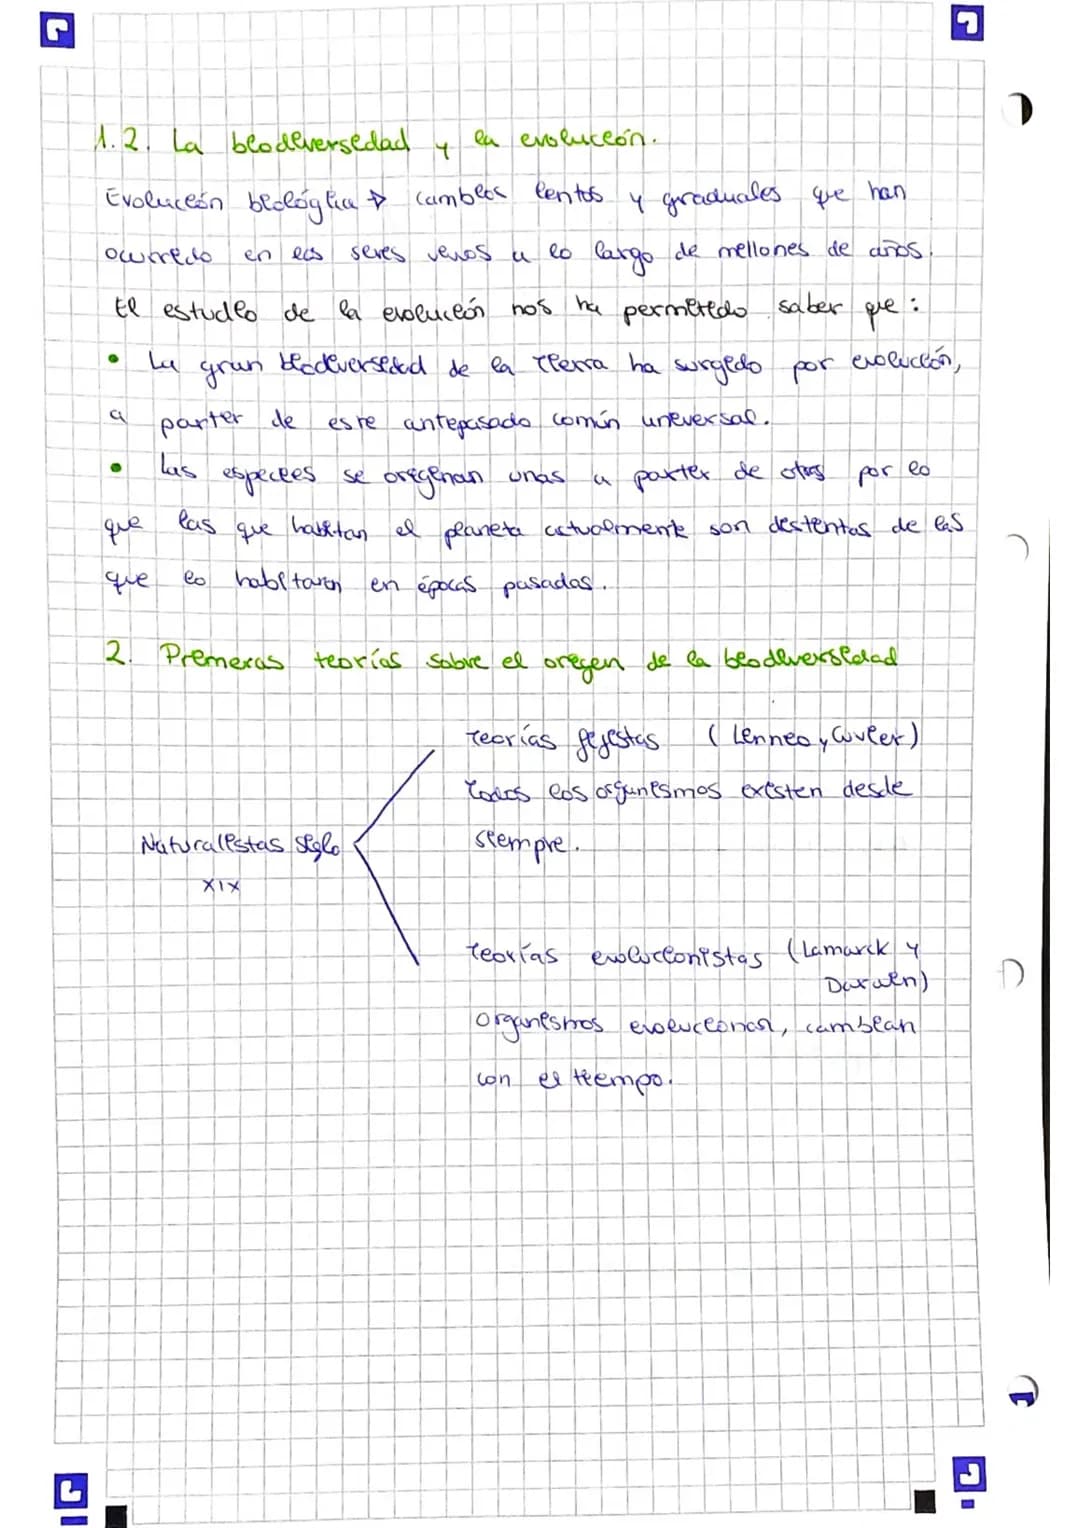 1.2. La biodiversidad y la evolución.
Evolución biológica → cambios lentos y graduales que han
ocurrido en los seres vivos a lo largo de millones de años.
El estudio de la evolución nos ha permitido saber que:
• La gran biodiversidad de la Tierra ha surgido por evolución,
a partir de este antepasado común universal.
• Las especies se originan unas a partir de otras por lo
que las que habitan el planeta actualmente son distintas de las
que lo habitaron en épocas pasadas.
2. Primeras teorías sobre el origen de la biodiversidad
Teorías fijistas (Linneo y Cuvier)
Todos los organismos existen desde
siempre.
Naturalistas siglo
XIX
Teorías evolucionistas (Lamarck y
Darwin)
Organismos evolucionan, cambian
con el tiempo.